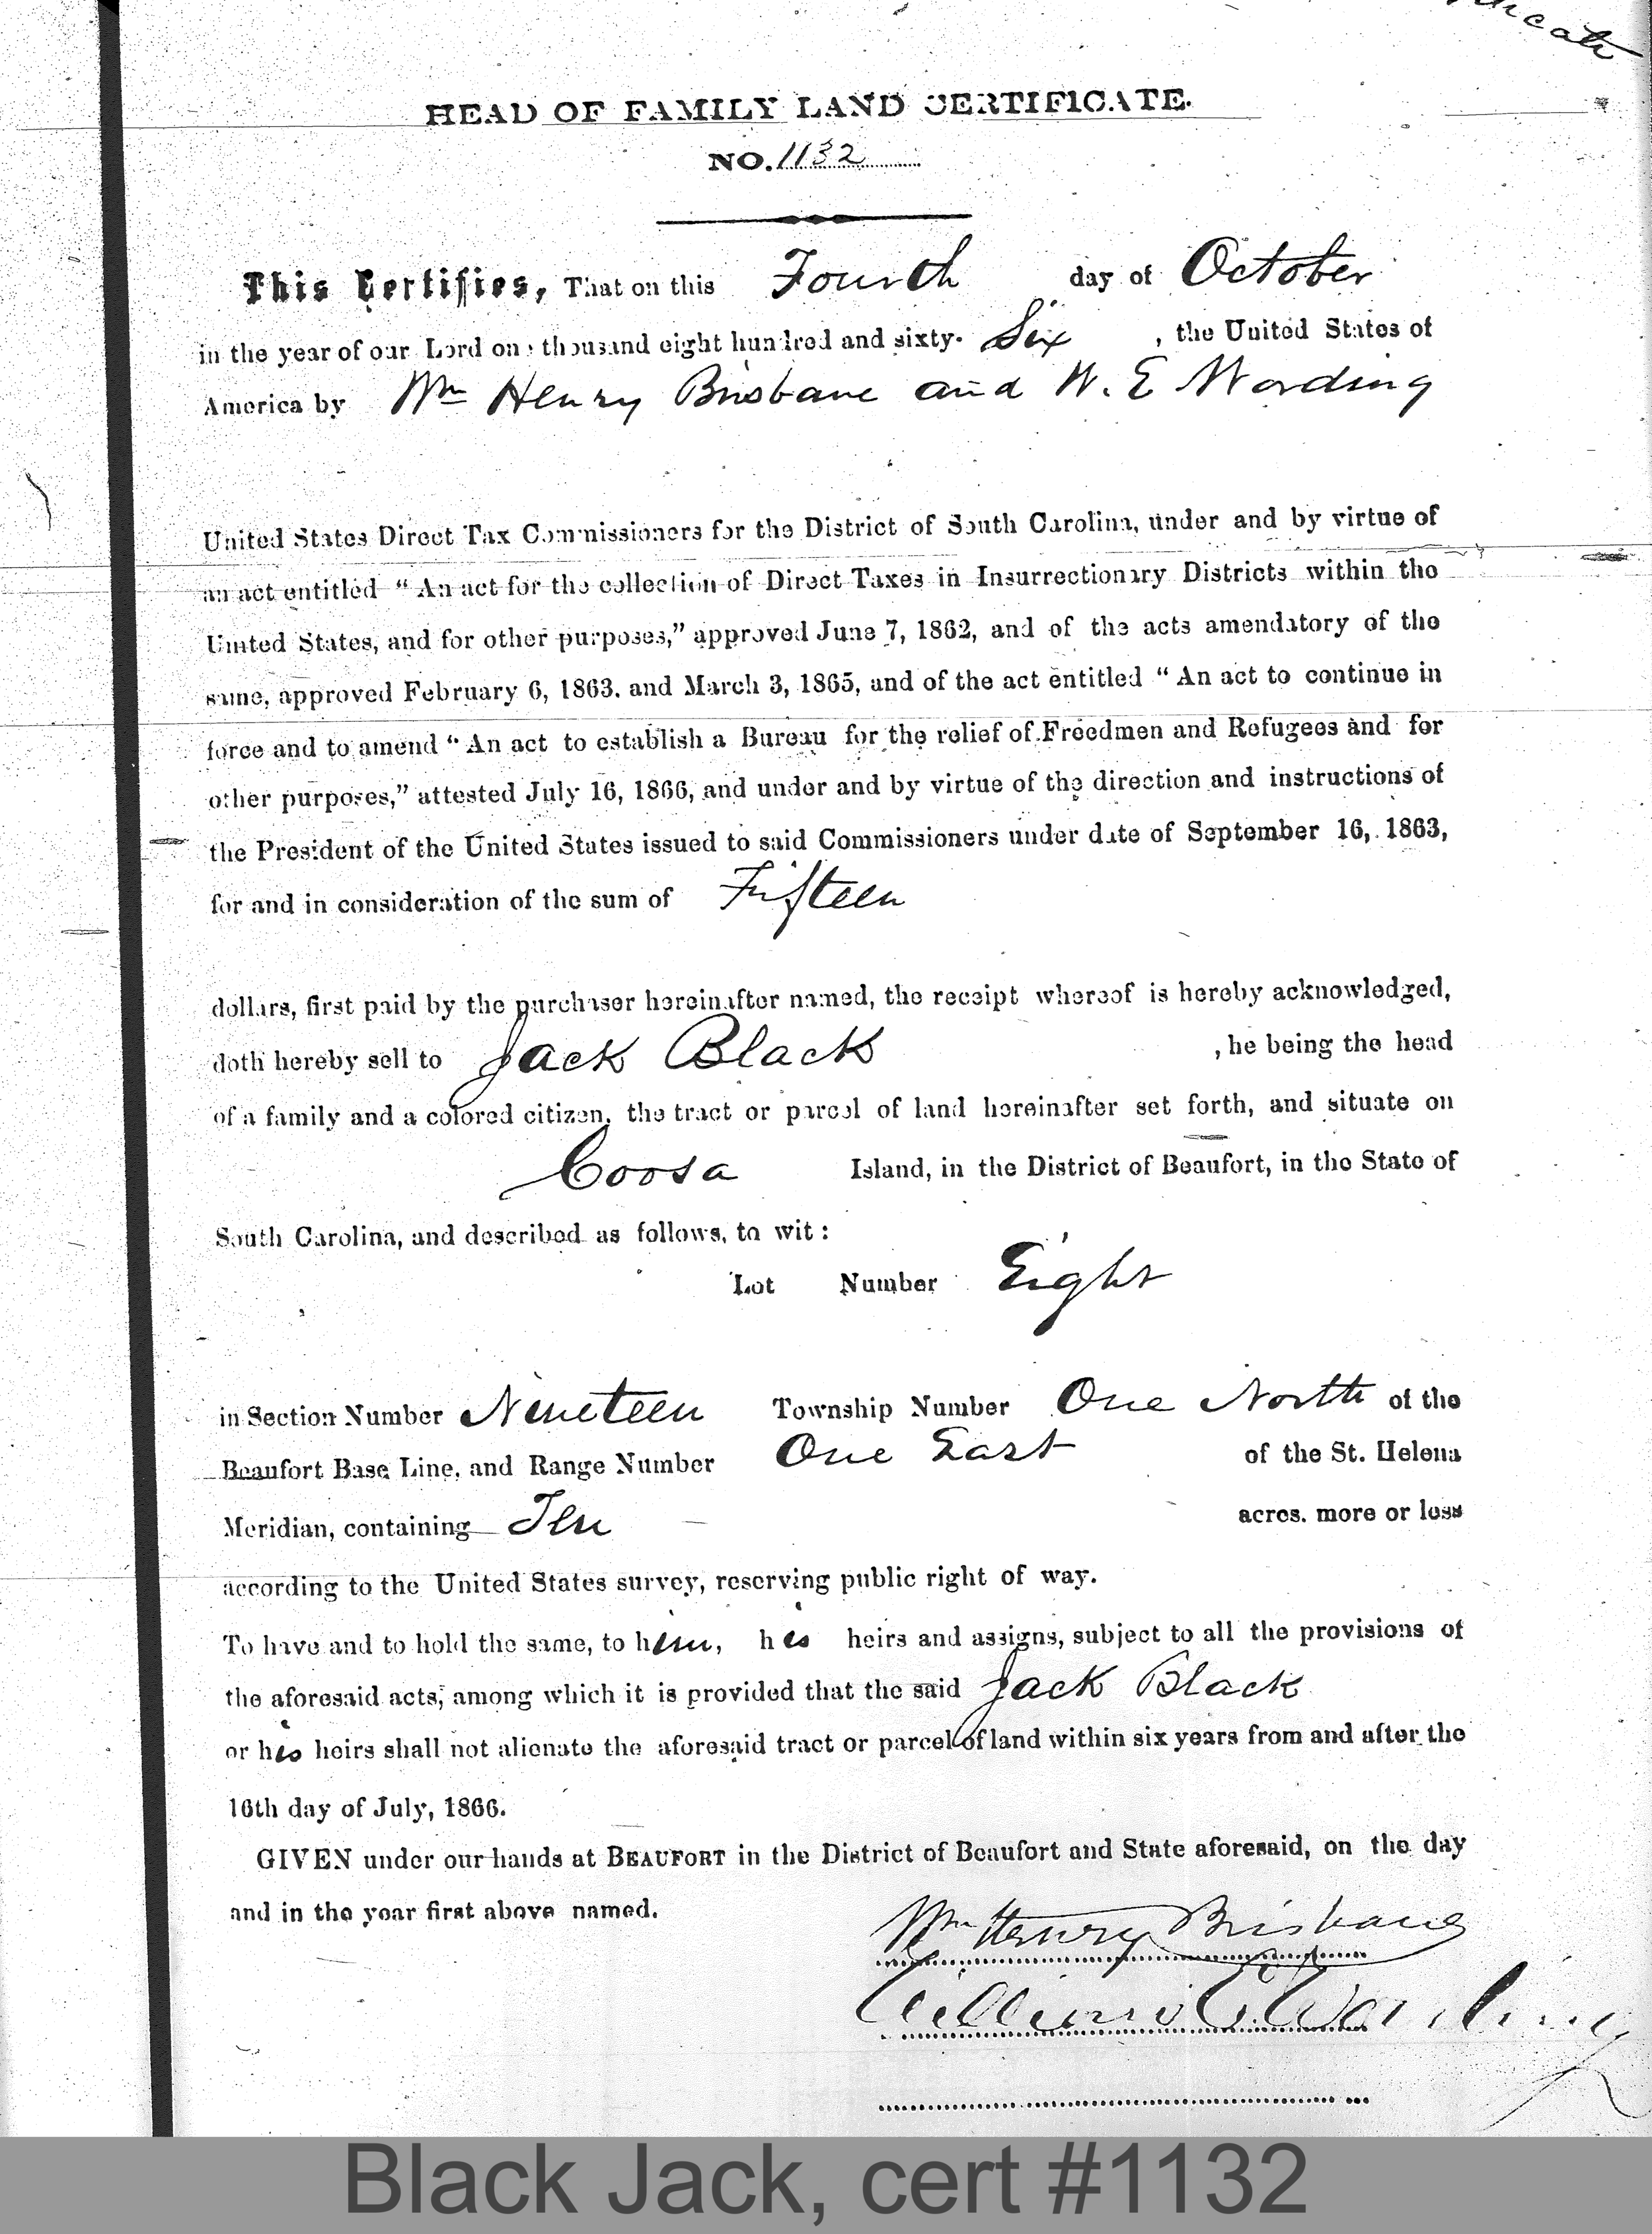 HEAD OF FAMILY LAND CERTIFICATE.
NO. 1132
This Certifies, That on this Fourth day of October
in the year of our Lord one thousand eight hundred and sixty- Six , the United States of
America by Wm Henry Brisbane and W. E Wording
United States Direct Tax Commissioners for the District of South Carolina, under and by virtue of
an act entitled “ An act for the collection of Direct Taxes in Insurrectionary Districts within the
United States, and for other purposes,” approved June 7, 1862, and of the acts amendatory of the
same, approved February 6, 1863. and March 3, 1865, and of the act entitled “ An act to continue in
force and to amend “ An act to establish a Bureau for the relief of Freedmen and Refugees and for
other purposes,” attested July 16, 1866, and under and by virtue of the direction and instructions of
the President of the United States issued to said Commissioners under date of September 16, 1863,
for and in consideration of the sum of Fifteen
dollars, first paid by the purchaser hereinafter named, the receipt whereof is hereby acknowledged,
doth hereby sell to Jack Black , he being the head
of a family and a colored citizen, the tract or parcel of land hereinafter set forth, and situate on
Coosa Island, in the District of Beaufort, in the State of
South Carolina, and described as follows, to wit :
Lot Number Eight
in Section Number Nineteen Township Number One North of the
Beaufort Base Line, and Range Number One East of the St. Helena
Meridian, containing Ten acres. more or less
according to the United States survey, reserving public right of way.
To have and to hold the same, to him, his heirs and assigns, subject to all the provisions of
the aforesaid acts, among which it is provided that the said Jack Black
or his heirs shall not alienate the aforesaid tract or parcel of land within six years from and after the
16th day of July, 1866.
GIVEN under our hands at BEAUFORT in the District of Beaufort and State aforesaid, on the day
and in the year first above named.
Wm Henry Brisbane
William E. Wording
Black Jack, cert #1132